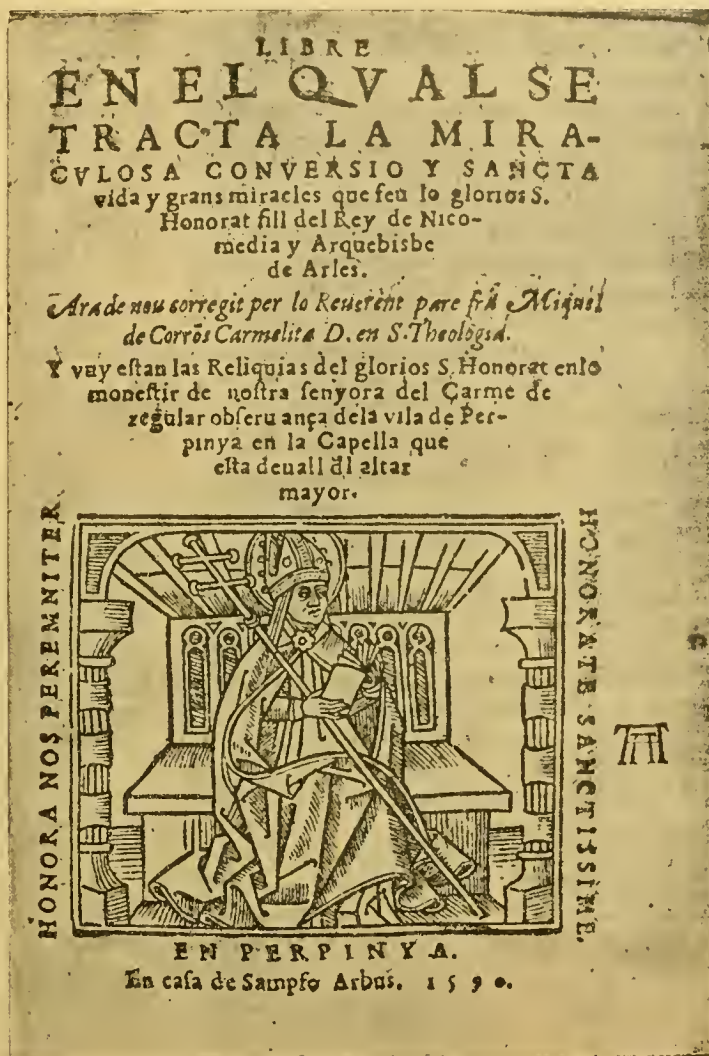 LIBRE
EN EL QVAL SE
TRACTA LA MIRA-
CVLOSA CONVERSIO Y SANCTA
vida y grans miracles que feu lo glorios S.
Honorat fill del Rey de Nico-
media y Arquebisbe
de Arles.
Ara de nou corregit per lo Reuerēnt pare fra Miquel
de Corrōs Carmelita D. en S. Theologia.
Y vuy eſtan las Reliquias del glorios S. Honorat enlo
moneſtir de noſtra ſenyora del Carme de
regular obſeruança dela vila de Per-
pinya en la Capella que
eſta deuall dl altar
mayor.
HONORA NOS PEREMNITER
HONORATE SANCTISSIME.
EN PERPINYA.
En caſa de Sampſo Arbus. 1590.